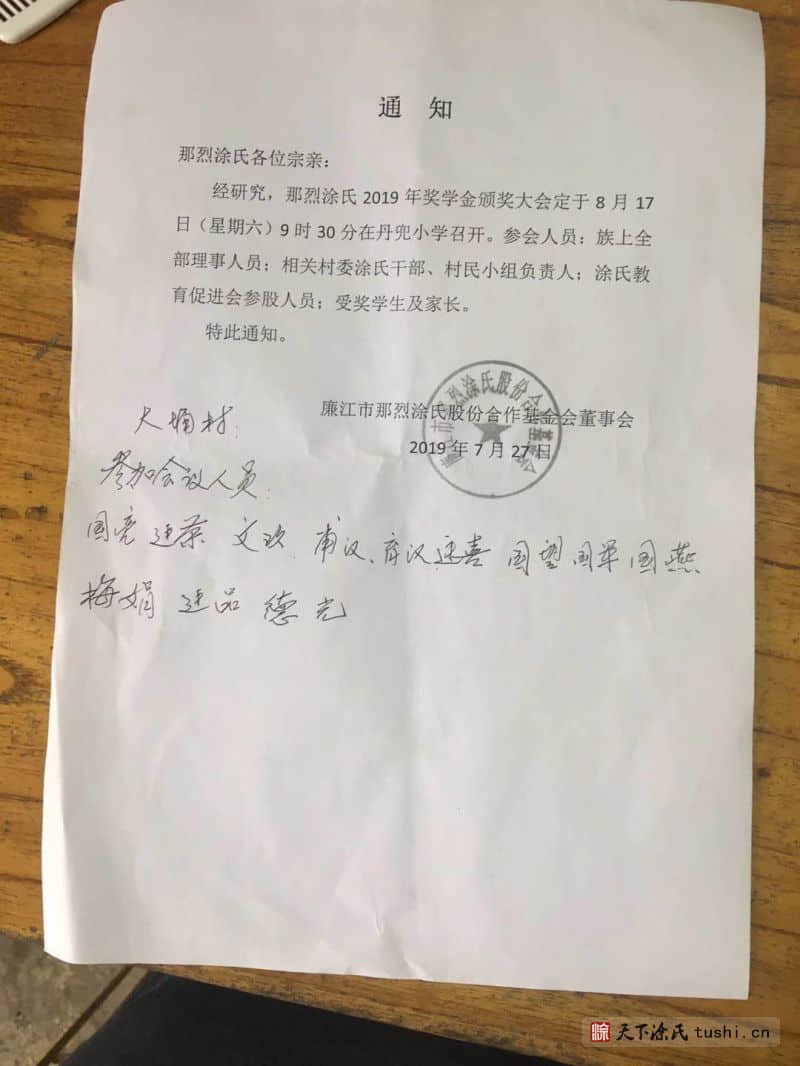 通 知
那烈涂氏各位宗亲：
经研究，那烈涂氏 2019 年奖学金颁奖大会定于 8 月 17
日（星期六）9 时 30 分在丹兜小学召开。参会人员：族上全
部理事人员；相关村委涂氏干部、村民小组负责人；涂氏教
育促进会参股人员；受奖学生及家长。
特此通知。
廉江市那烈涂氏股份合作基金会董事会
2019 年 7 月 27 日
廉江市那烈涂氏股份合作基金会
大 村：
参加会议人员：
国亮 文 汉、 汉、 喜 国望 国军 国燕
梅娟 品 德光
天下涂氏 tushi.cn